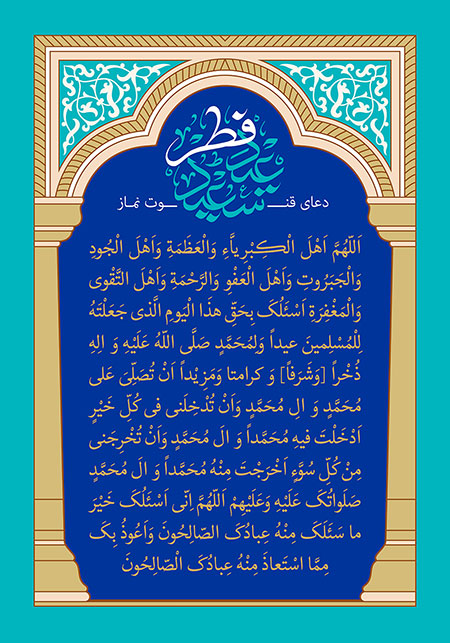 عید سعید فطر
دعای قنــوت نماز
اَللّهُمَّ اَهْلَ الْکِبْرِیاَّءِ وَالْعَظَمَةِ وَاَهْلَ الْجُودِ
وَالْجَبَرُوتِ وَاَهْلَ الْعَفْوِ وَالرَّحْمَةِ وَاَهْلَ التَّقْوی
وَالْمَغْفِرَةِ اَسْئَلُکَ بِحَقِّ هذَا الْیَومِ الَّذی جَعَلْتَهُ
لِلْمُسْلِمینَ عیداً وَلِمُحَمَّدٍ صَلَّی اللّهُ عَلَیْهِ وَ الِهِ
ذُخْراً [وَشَرَفاً] وَ کرامتا وَمَزیْداً اَنْ تُصَلِّیَ عَلی
مُحَمَّدٍ وَ الِ مُحَمَّدٍ وَاَنْ تُدْخِلَنی فی کُلِّ خَیْرٍ
اَدْخَلْتَ فیهِ مُحَمَّداً وَ الَ مُحَمَّدٍ وَاَنْ تُخْرِجَنی
مِنْ کُلِّ سُوَّءٍ اَخْرَجْتَ مِنْهُ مُحَمَّداً وَ الَ مُحَمَّدٍ
صَلَواتُکَ عَلَیْهِ وَعَلَیْهِمْ اَللّهُمَّ اِنّی اَسْئَلُکَ خَیْرَ
ما سَئَلَکَ مِنْهُ عِبادُکَ الصّالِحُونَ وَاَعُوذُ بِکَ
مِمَّا اسْتَعاذَ مِنْهُ عِبادُکَ الْصّالِحُونَ